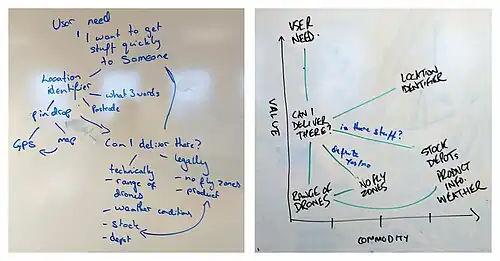 User need
"I want to get
stuff quickly
to Someone
Location
identifier
what 3 words
Postcode
pin drop
GPS
map
Can I deliver there?
technically
- range of
drones
- weather conditions
- stock
- depot
legally
- no fly zones
- product
USER
NEED
VALUE
CAN I
DELIVER
THERE?
LOCATION
IDENTIFIER
is there stuff?
STOCK
DEPOTS
PRODUCT
INFO.
WEATHER
definite
yes/no
NO FLY
ZONES
RANGE OF
DRONES
COMMODITY